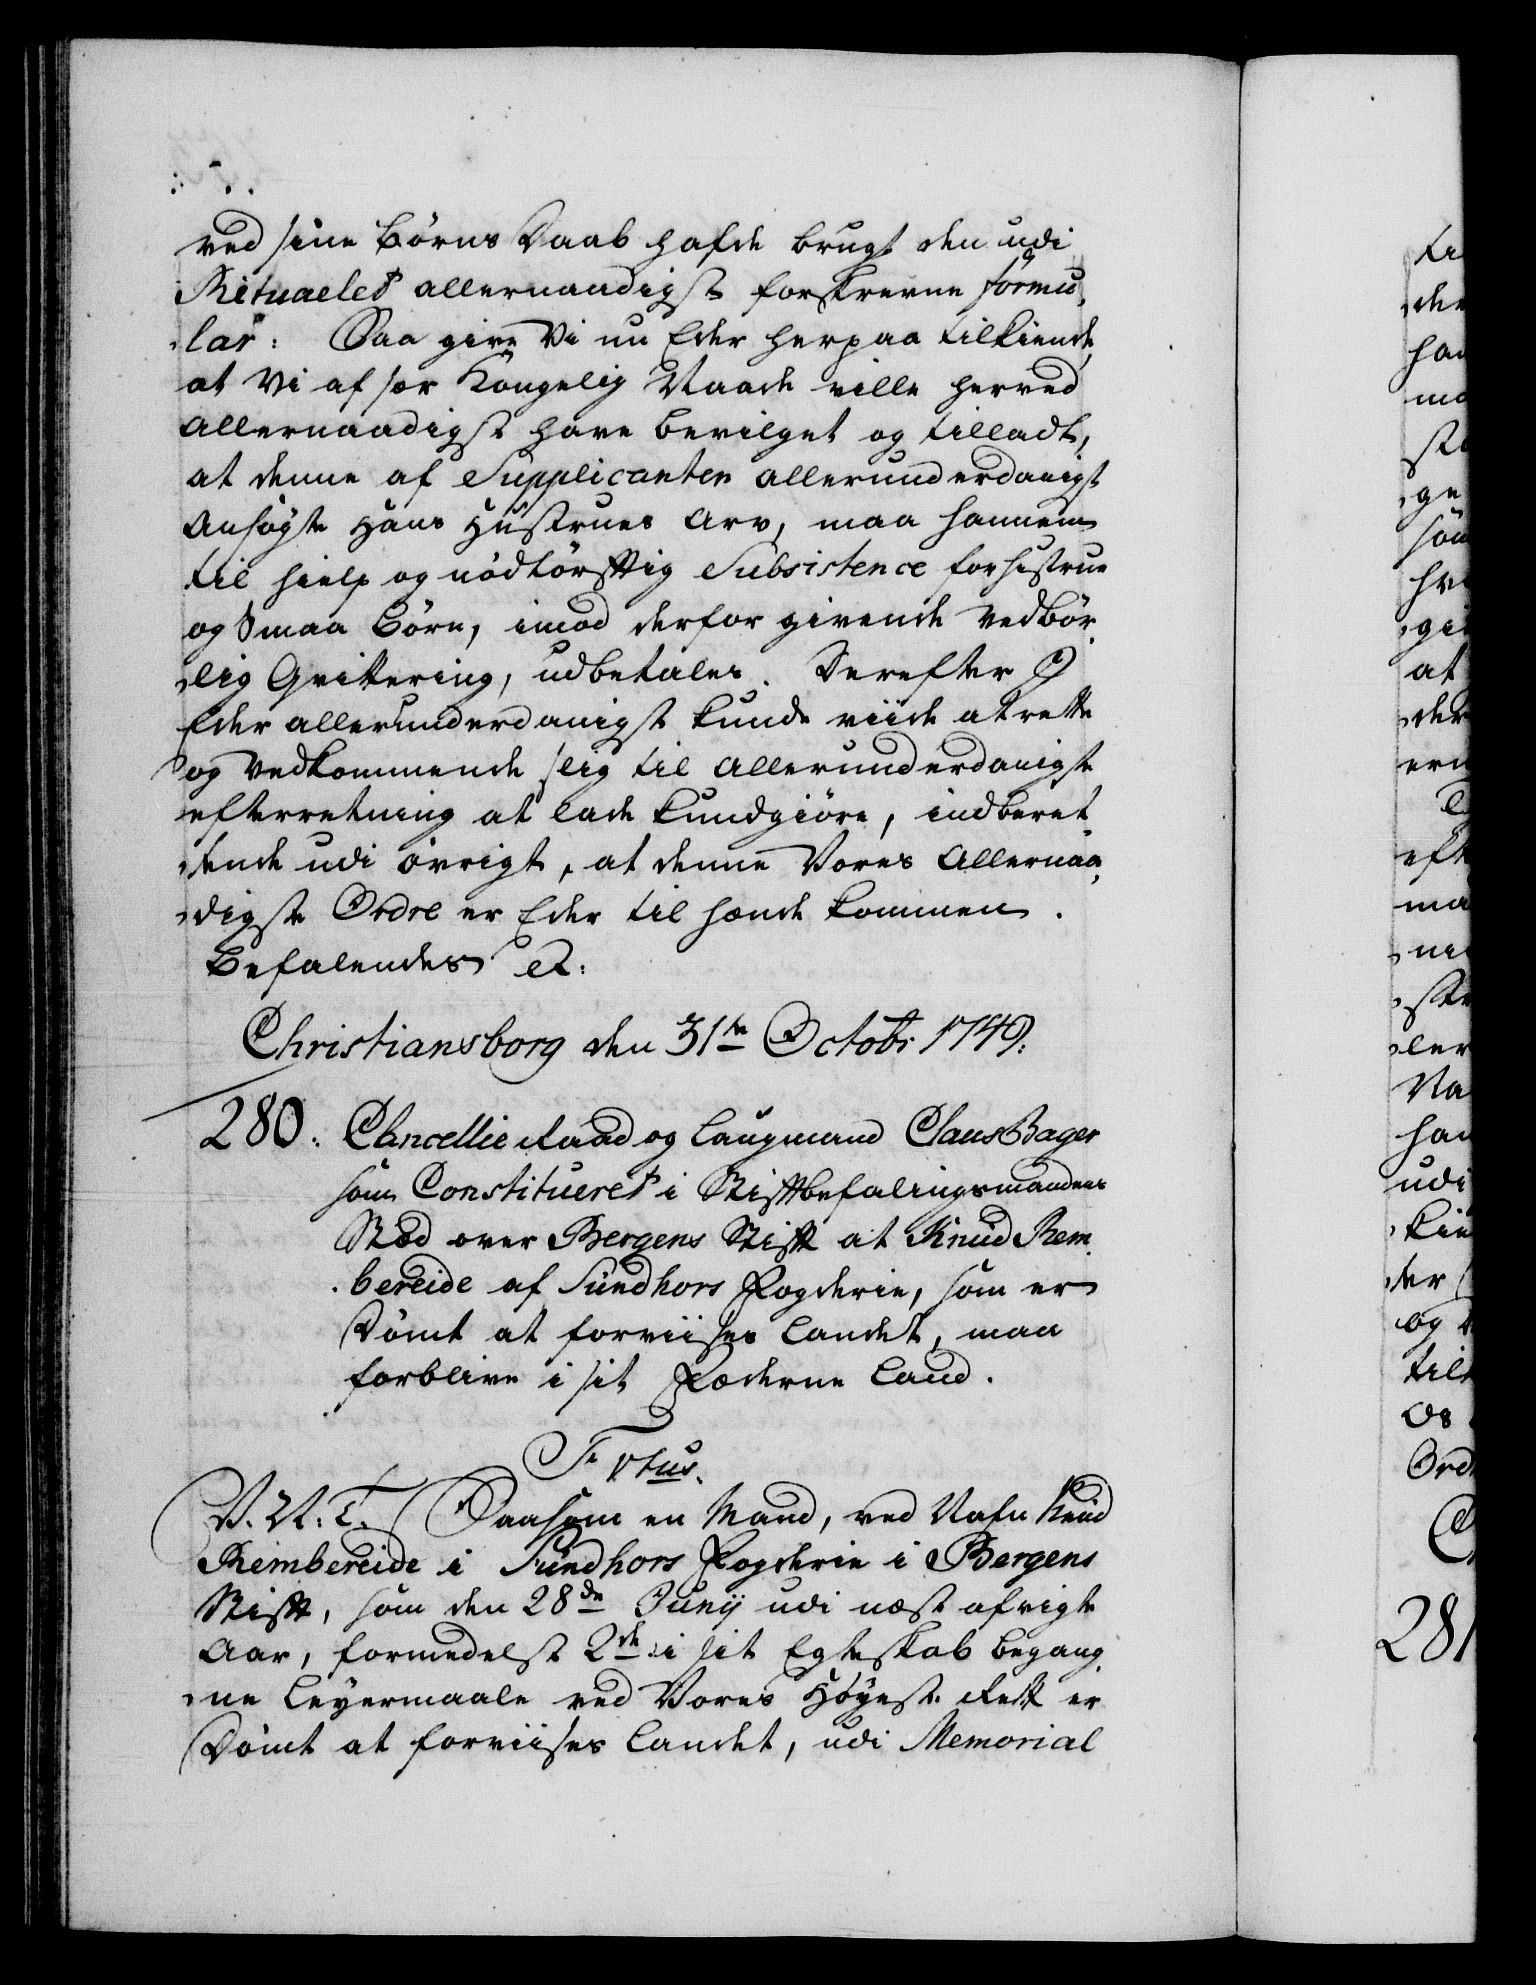 ved sine Børns Daab hafde brugt den udi
Ritualet allernaadigst forskrevne formu-
lar: Saa give Vi nu Eder herpaa tilkiende,
at Vi af sær Kongelig Naade ville herved
Allernaadigst have bevilget og tilladt,
at denne af Supplicanten allerunderdanigst
Ansøgte Hans Hustrues Arv, maa hannem
til hielp og nødtørfftig Subsistence for hustrue
og Smaa Børn, imod derfor givende vedbør-
lig Qvittering, udbetales. Derefter I
Eder allerunderdanigst kunde viide at rette
og Vedkommende slig til Allerunderdanigste
efterretning at lade kundgiöre, indberet-
tende udi øvrigt, at denne Vores Allernaa-
digste Ordre er Eder til hænde kommen.
Befalendes etc:
Christiansborg den 31te Octobr 1749.
280. Cancellie Raad og Laugmand Claus Bager
som Constitueret i Stiftbefalingsmandens
Stæd over Bergens Stift at Knud Rem-
bereide af Sundhors Fogderie, som er
Dömt at forviises Landet, maa
forblive i sit Fæderne Land.
V. A. T. Saasom en Mand, ved Nafn Knud
Rembereide i Sundhors Fogderie i Bergens
Stift, som den 28de Junij udi næst afvigte
Aar, formedelst 2de i sit Egteskab begang-
ne Leyermaale ved Vores Høyeste Rett er
Dömt at forviises Landet, udi Memorial
281